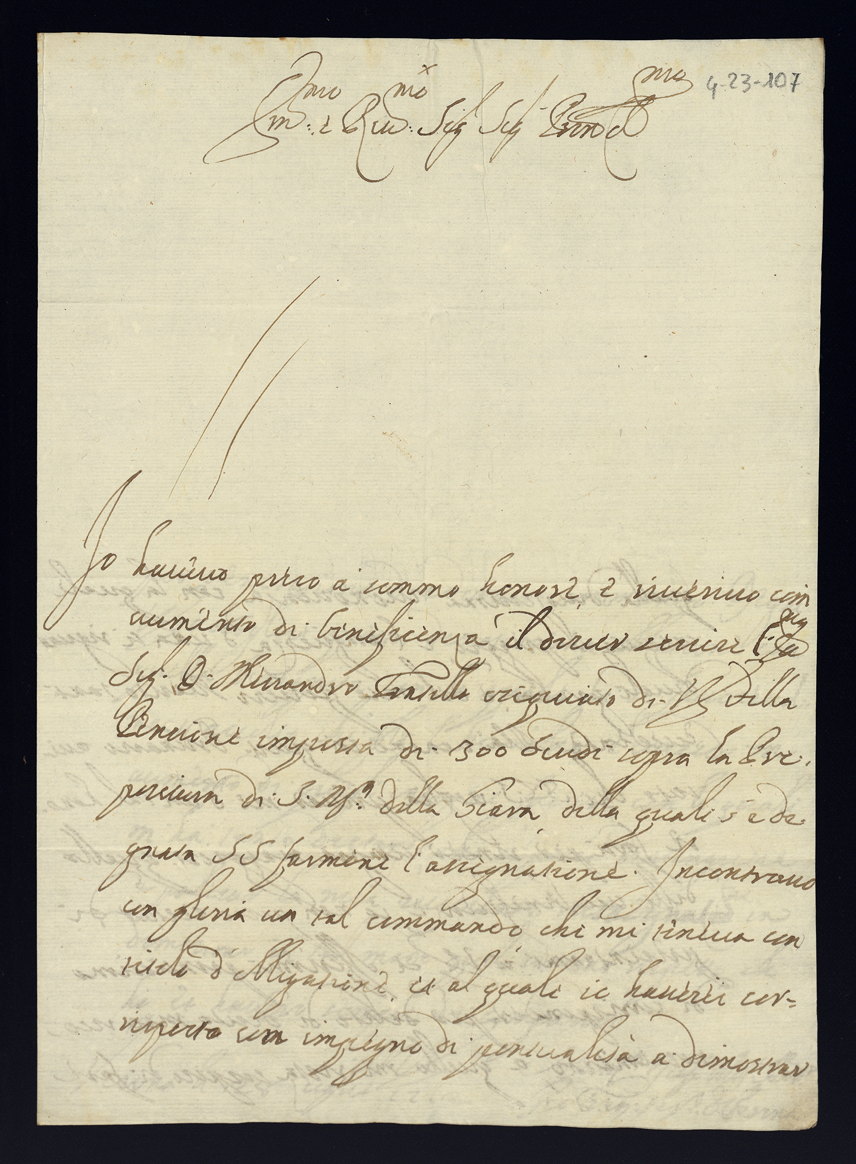 4-23-107
Em.mo e Rev.mo Sig.r Sig.r Pron Col.mo
Io havevo preso a sommo honore, e ricevevo con
aumento di beneficenza il dover servire l'
Sig.r D. Alessandro di V. Em della
Pensione imposta di 300 scudi sopra la Pre-
positura di S. M.a della Giara della quale s'è de-
gnata farmene l'assignatione. Incontravo
con gloria un tal commando, che mi teneva con
titolo d'obligatione, et al quale io haverei cor=
risposto con impegno di pontualità a dimostrar